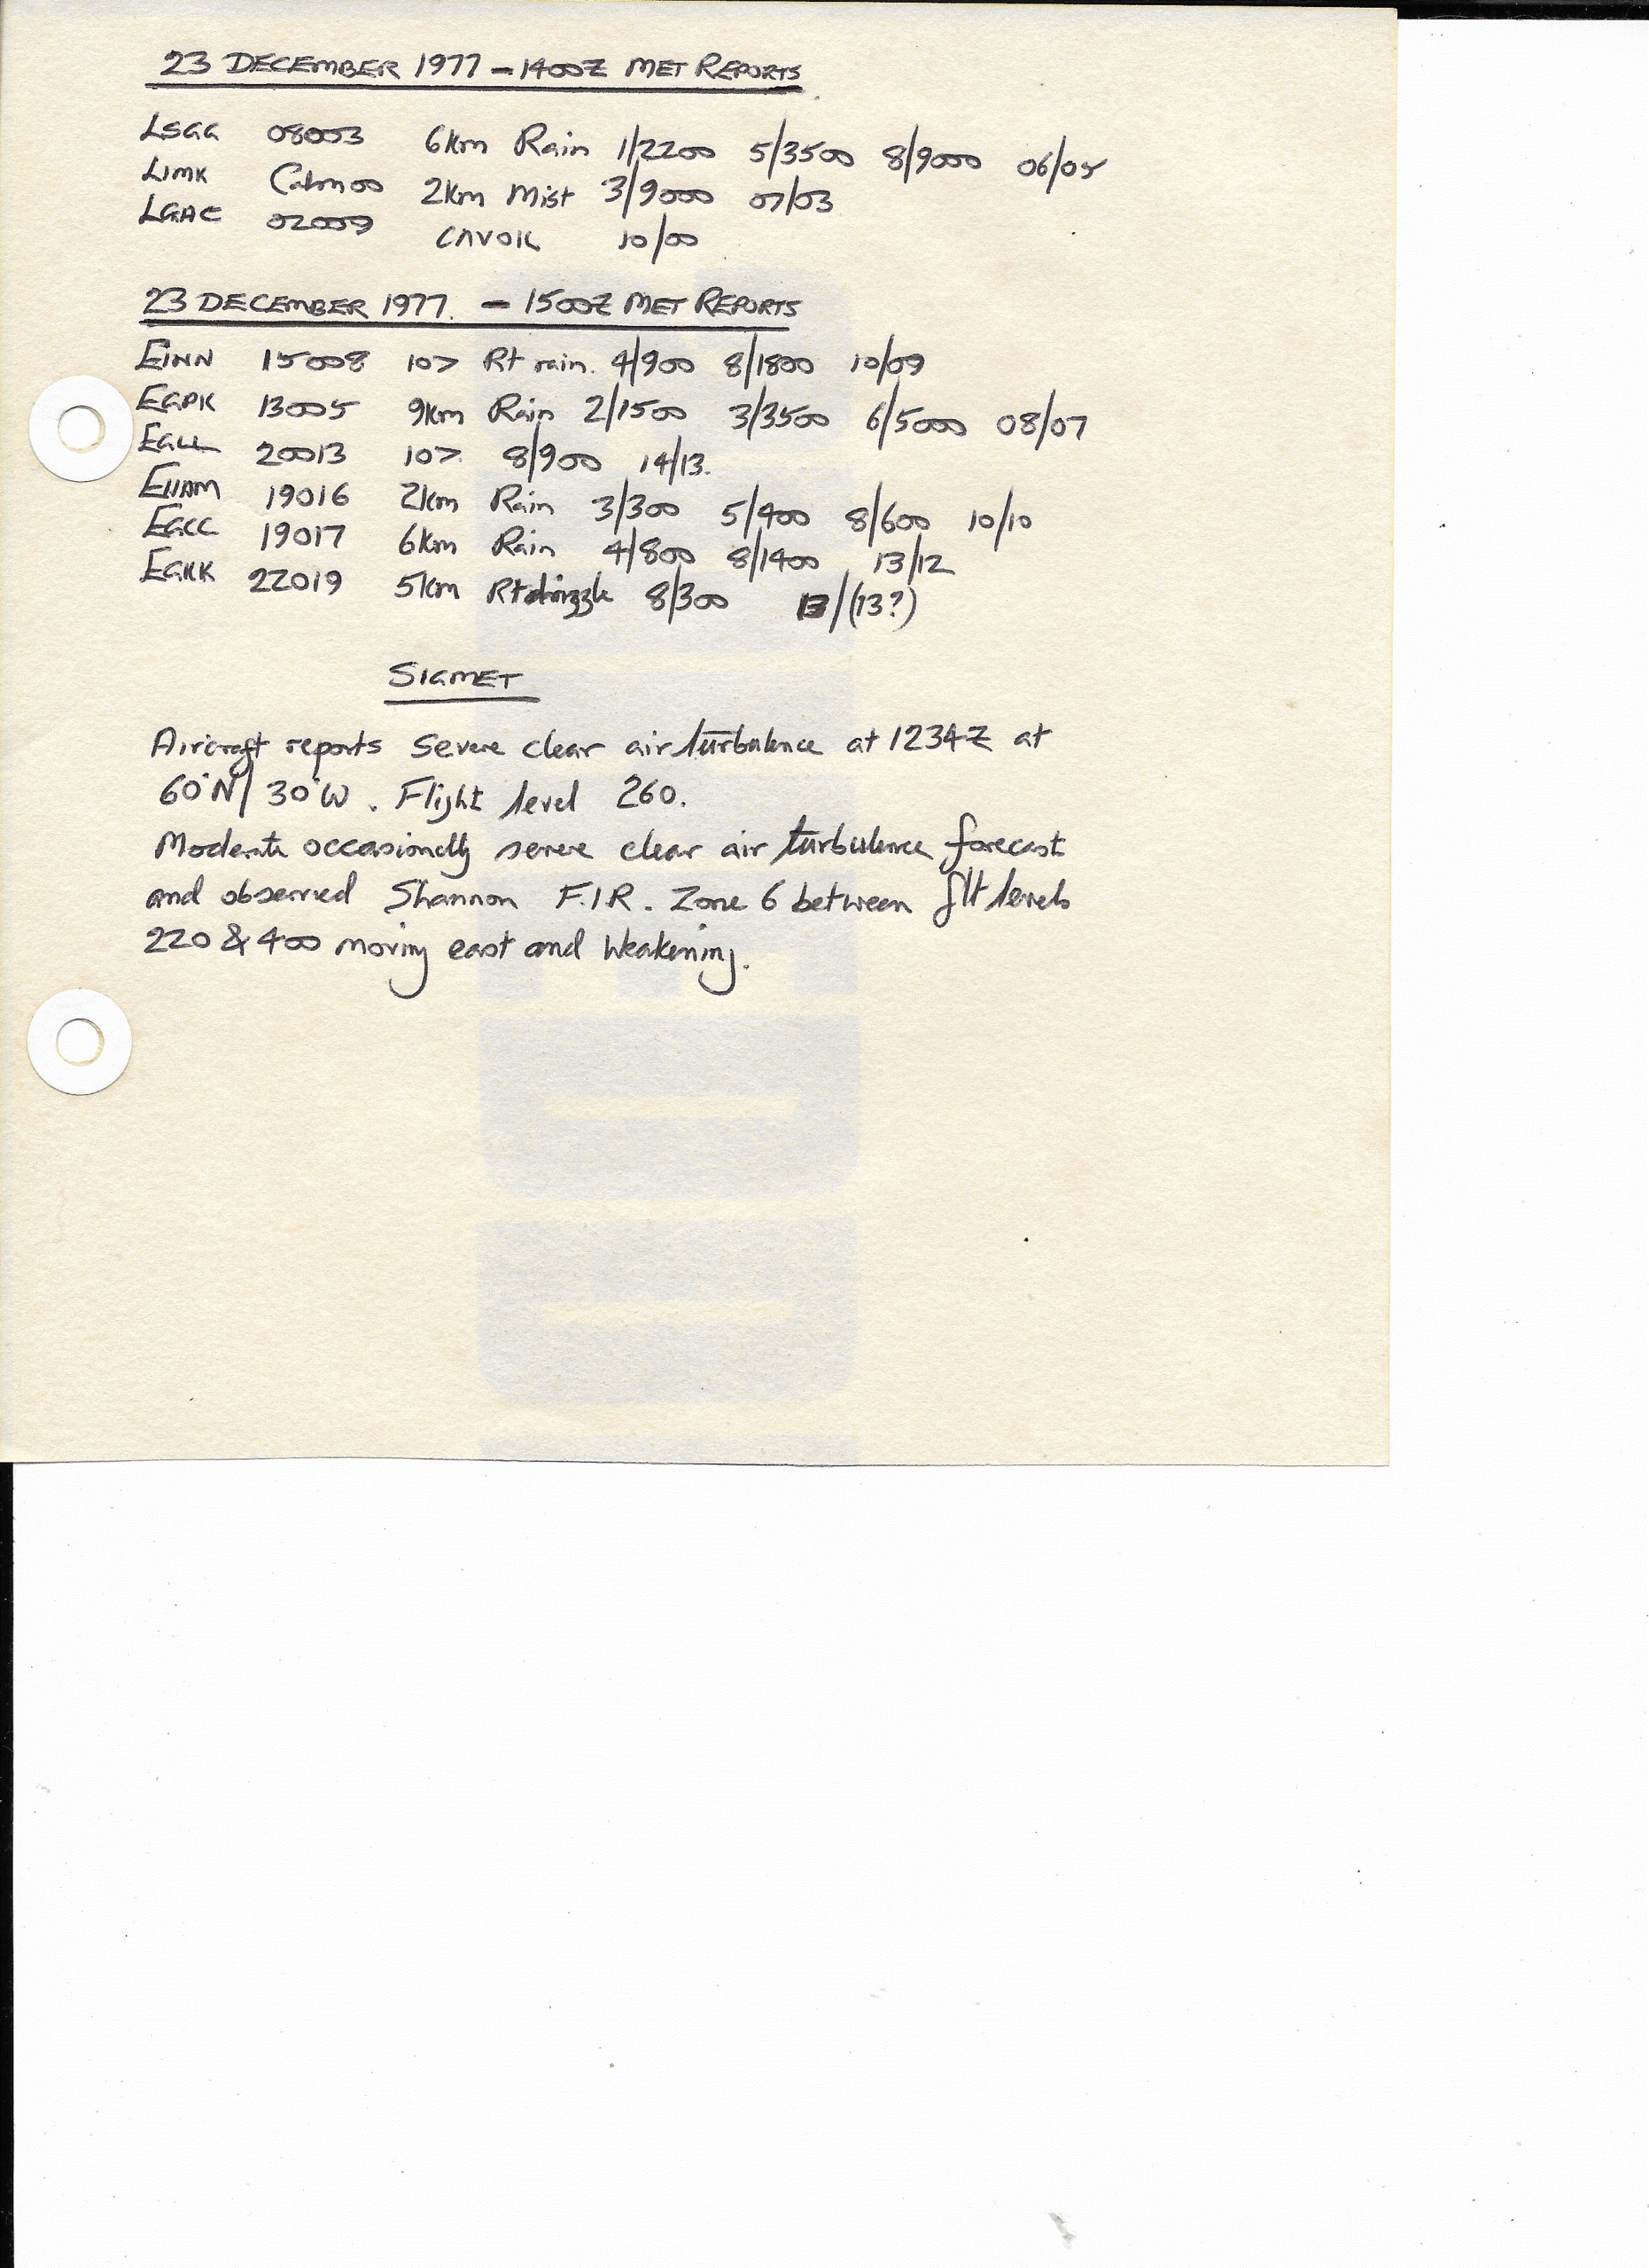 23 DECEMBER 1977 - 1400Z MET REPORTS
LSGG 08003 6km Rain 1/2200 5/3500 8/9000 06/05
LIMK Calm 00 2km Mist 3/9000 07/03
LGAC 02009 CAVOK 10/00
23 DECEMBER 1977. - 1500Z MET REPORTS
EINN 15008 10> Rt rain. 4/900 8/1800 10/09
EGPK 13005 9km Rain 2/1500 3/3500 6/5000 08/07
EGLL 20013 10> 8/900 14/13.
EHAM 19016 2km Rain 3/300 5/400 8/600 10/10
EGCC 19017 6km Rain 4/800 8/1400 13/12
EGKK 22019 5km Rt drizzle 8/300 13/(13?)
SIGMET
Aircraft reports severe clear air turbulence at 1234Z at
60°N/30°W. Flight level 260.
Moderate occasionally severe clear air turbulence forecast
and observed Shannon F.I.R. Zone 6 between flt levels
220 & 400 moving east and weakening.